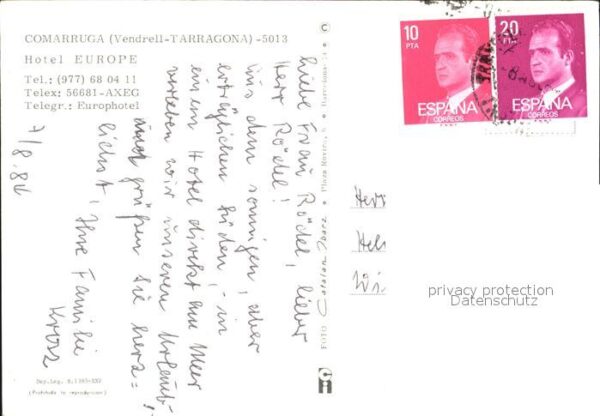 COMARRUGA (Vendrell-TARRAGONA) -5013
Hotel EUROPE
Tel.: (977) 68 04 11
Telex: 56681-AXEG
Telegr.: Europhotel
7/8.84
Liebe Frau Rödel, lieber
Herr Rödel!
Aus dem sonnigen, aber
erträglichen Süden, - in
einem Hotel direkt am Meer
verleben wir unseren Urlaub!
Und grüßen Sie herz=
lichst, Ihre Familie
Kross
Dep. Leg. B.
(Prohibida la reproducción)
FOTO
Barcelona
10
PTA
ESPAÑA
CORREOS
20
PTA
ESPAÑA
CORREOS
Herr
Hel
Wi
privacy protection
Datenschutz